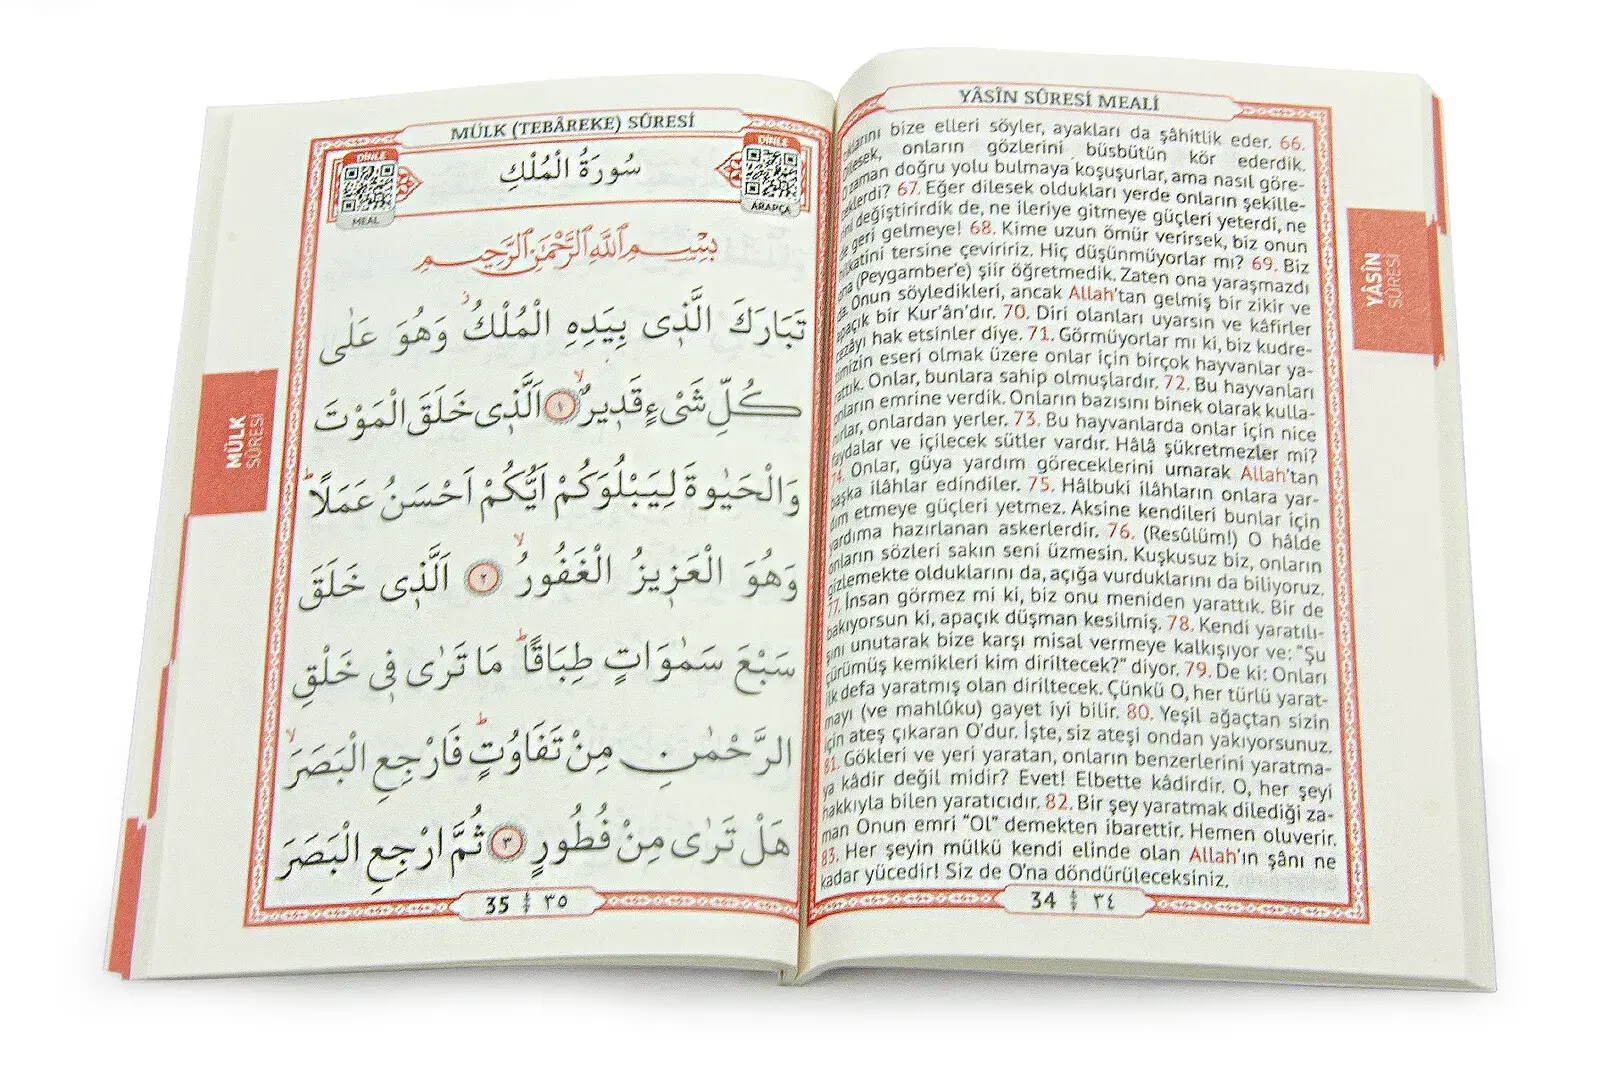 YÂSÎN SÛRESİ MEALİ
bize elleri söyler, ayakları da şâhitlik eder. 66.
dilesek, onların gözlerini büsbütün kör ederdik.
zaman doğru yolu bulmaya koşuşurlar, ama nasıl göre-
ceklerdi? 67. Eğer dilesek oldukları yerde onların şekille-
rini değiştirirdik de, ne ileriye gitmeye güçleri yeterdi, ne
de geri gelmeye! 68. Kime uzun ömür verirsek, biz onun
hilkatini tersine çeviririz. Hiç düşünmüyorlar mı? 69. Biz
ona (Peygamber'e) şiir öğretmedik. Zaten ona yaraşmazdı
da. Onun söyledikleri, ancak Allah'tan gelmiş bir zikir ve
apaçık bir Kur'ân'dır. 70. Diri olanları uyarsın ve kâfirler
cezâyı hak etsinler diye. 71. Görmüyorlar mı ki, biz kudre-
timizin eseri olmak üzere onlar için birçok hayvanlar ya-
rattık. Onlar, bunlara sahip olmuşlardır. 72. Bu hayvanları
onların emrine verdik. Onların bazısını binek olarak kulla-
nırlar, onlardan yerler. 73. Bu hayvanlarda onlar için nice
faydalar ve içilecek sütler vardır. Hâlâ şükretmezler mi?
74. Onlar, güya yardım göreceklerini umarak Allah'tan
başka ilâhlar edindiler. 75. Hâlbuki ilâhların onlara yar-
dım etmeye güçleri yetmez. Aksine kendileri bunlar için
yardıma hazırlanan askerlerdir. 76. (Resûlüm!) O hâlde
onların sözleri sakın seni üzmesin. Kuşkusuz biz, onların
gizlemekte olduklarını da, açığa vurduklarını da biliyoruz.
77. İnsan görmez mi ki, biz onu meniden yarattık. Bir de
bakıyorsun ki, apaçık düşman kesilmiş. 78. Kendi yaratılı-
şını unutarak bize karşı misal vermeye kalkışıyor ve: "Şu
çürümüş kemikleri kim diriltecek?" diyor. 79. De ki: Onları
ilk defa yaratmış olan diriltecek. Çünkü O, her türlü yarat-
mayı (ve mahlûku) gayet iyi bilir. 80. Yeşil ağaçtan sizin
için ateş çıkaran O'dur. İşte, siz ateşi ondan yakıyorsunuz.
81. Gökleri ve yeri yaratan, onların benzerlerini yaratma-
ya kâdir değil midir? Evet! Elbette kâdirdir. O, her şeyi
hakkıyla bilen yaratıcıdır. 82. Bir şey yaratmak dilediği za-
man Onun emri "Ol" demekten ibarettir. Hemen oluverir.
83. Her şeyin mülkü kendi elinde olan Allah'ın şânı ne
kadar yücedir! Siz de O'na döndürüleceksiniz.
34 ٣٤
YÂSÎN
SÛRESİ
MÜLK (TEBÂREKE) SÛRESİ
DİNLE
ARAPÇA
سُورَةُ الْمُلْكِ
DİNLE
MEAL
بِسْمِ اللّٰهِ الرَّحْمٰنِ الرَّحِيمِ
تَبَارَكَ الَّذ۪ى بِيَدِهِ الْمُلْكُۘ وَهُوَ عَلٰى
كُلِّ شَىْءٍ قَد۪يرٌۙ ١ اَلَّذ۪ى خَلَقَ الْمَوْتَ
وَالْحَيٰوةَ لِيَبْلُوَكُمْ اَيُّكُمْ اَحْسَنُ عَمَلًاۜ
وَهُوَ الْعَز۪يزُ الْغَفُورُۙ ٢ اَلَّذ۪ى خَلَقَ
سَبْعَ سَمٰوَاتٍ طِبَاقًاۜ مَا تَرٰى ف۪ى خَلْقِ
الرَّحْمٰنِ مِنْ تَفَاوُتٍۜ فَارْجِعِ الْبَصَرَۙ
هَلْ تَرٰى مِنْ فُطُورٍ ٣ ثُمَّ ارْجِعِ الْبَصَرَ
35 ٣٥
MÜLK
SÛRESİ